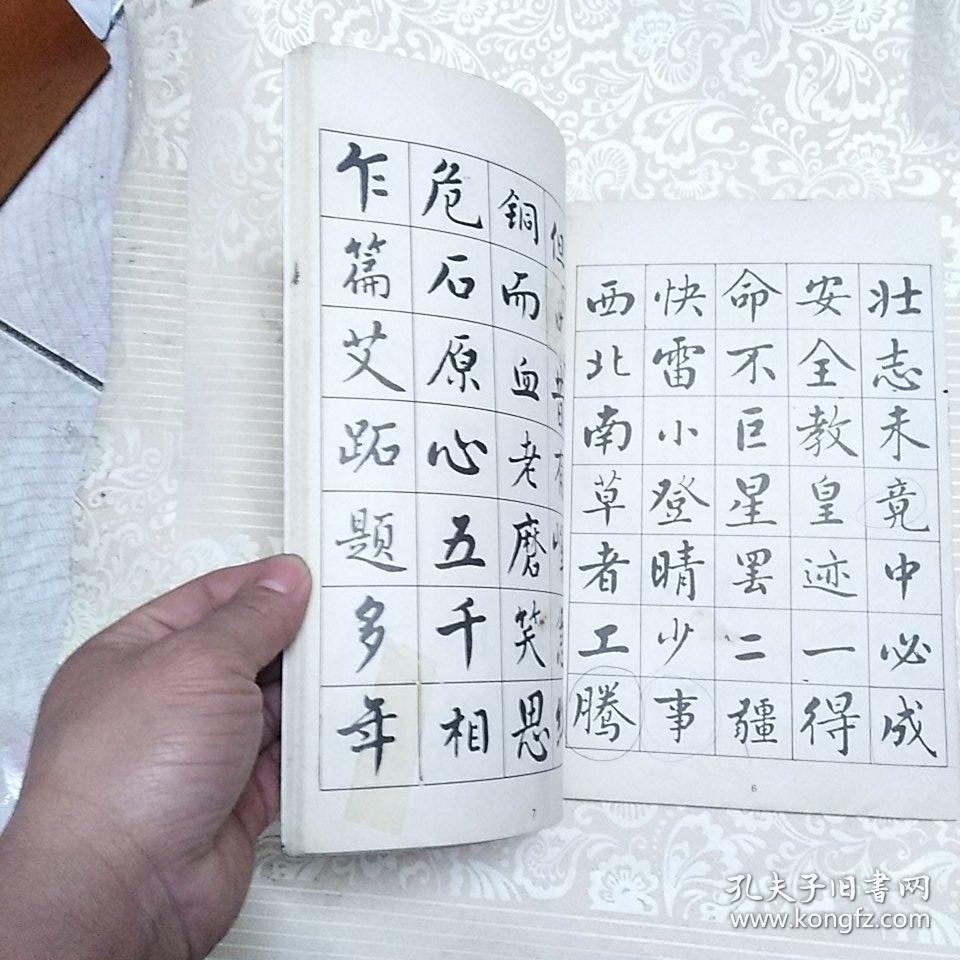 壮志未竟中必成
安全教皇迹一得
命不巨星罢二疆
快雷小登晴少事
西北南草者工腾
6
但
銅而血老磨笑思
危石原心五千相
乍篇艾跖题多年
7
孔夫子旧書网
www.kongfz.com